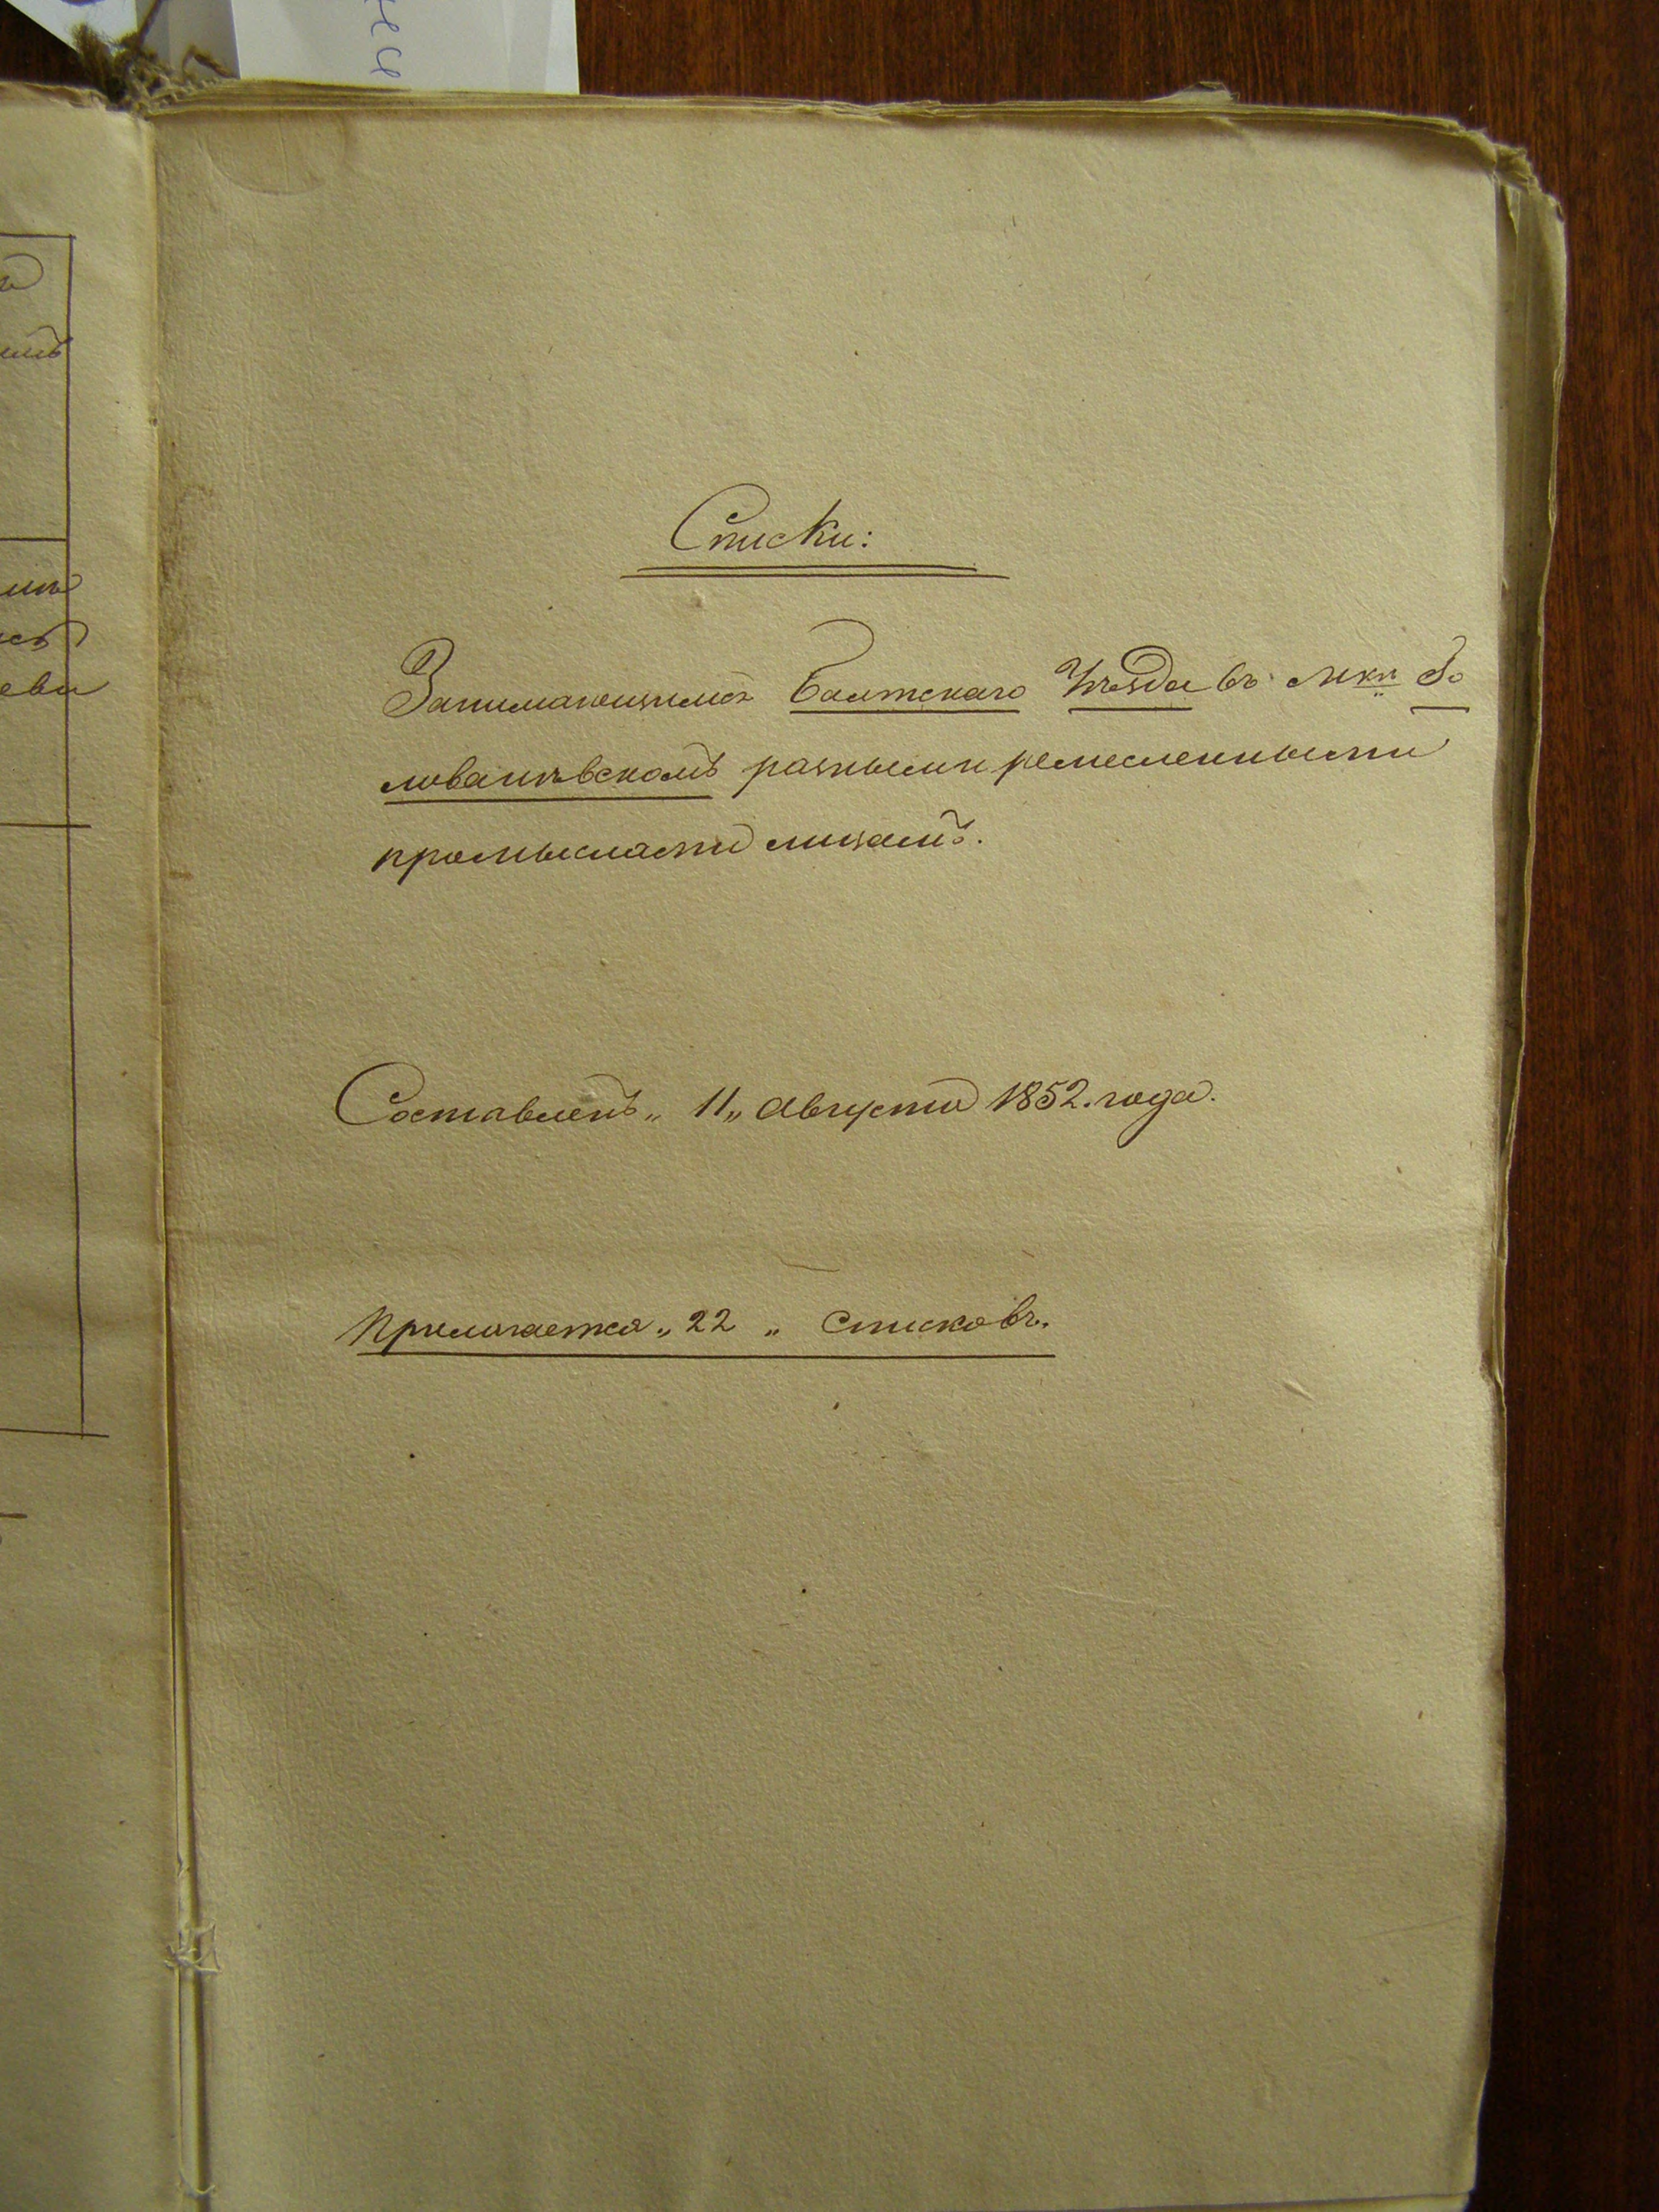 Списки:
Занимающимся Балтскаго Уѣзда въ Мкѣ Го
лованѣвскомъ разными ремесленными
промыслами лицамъ.
Составленъ „ 11 „ Августа 1852. года.
Прилагается „ 22 „ Списковъ.